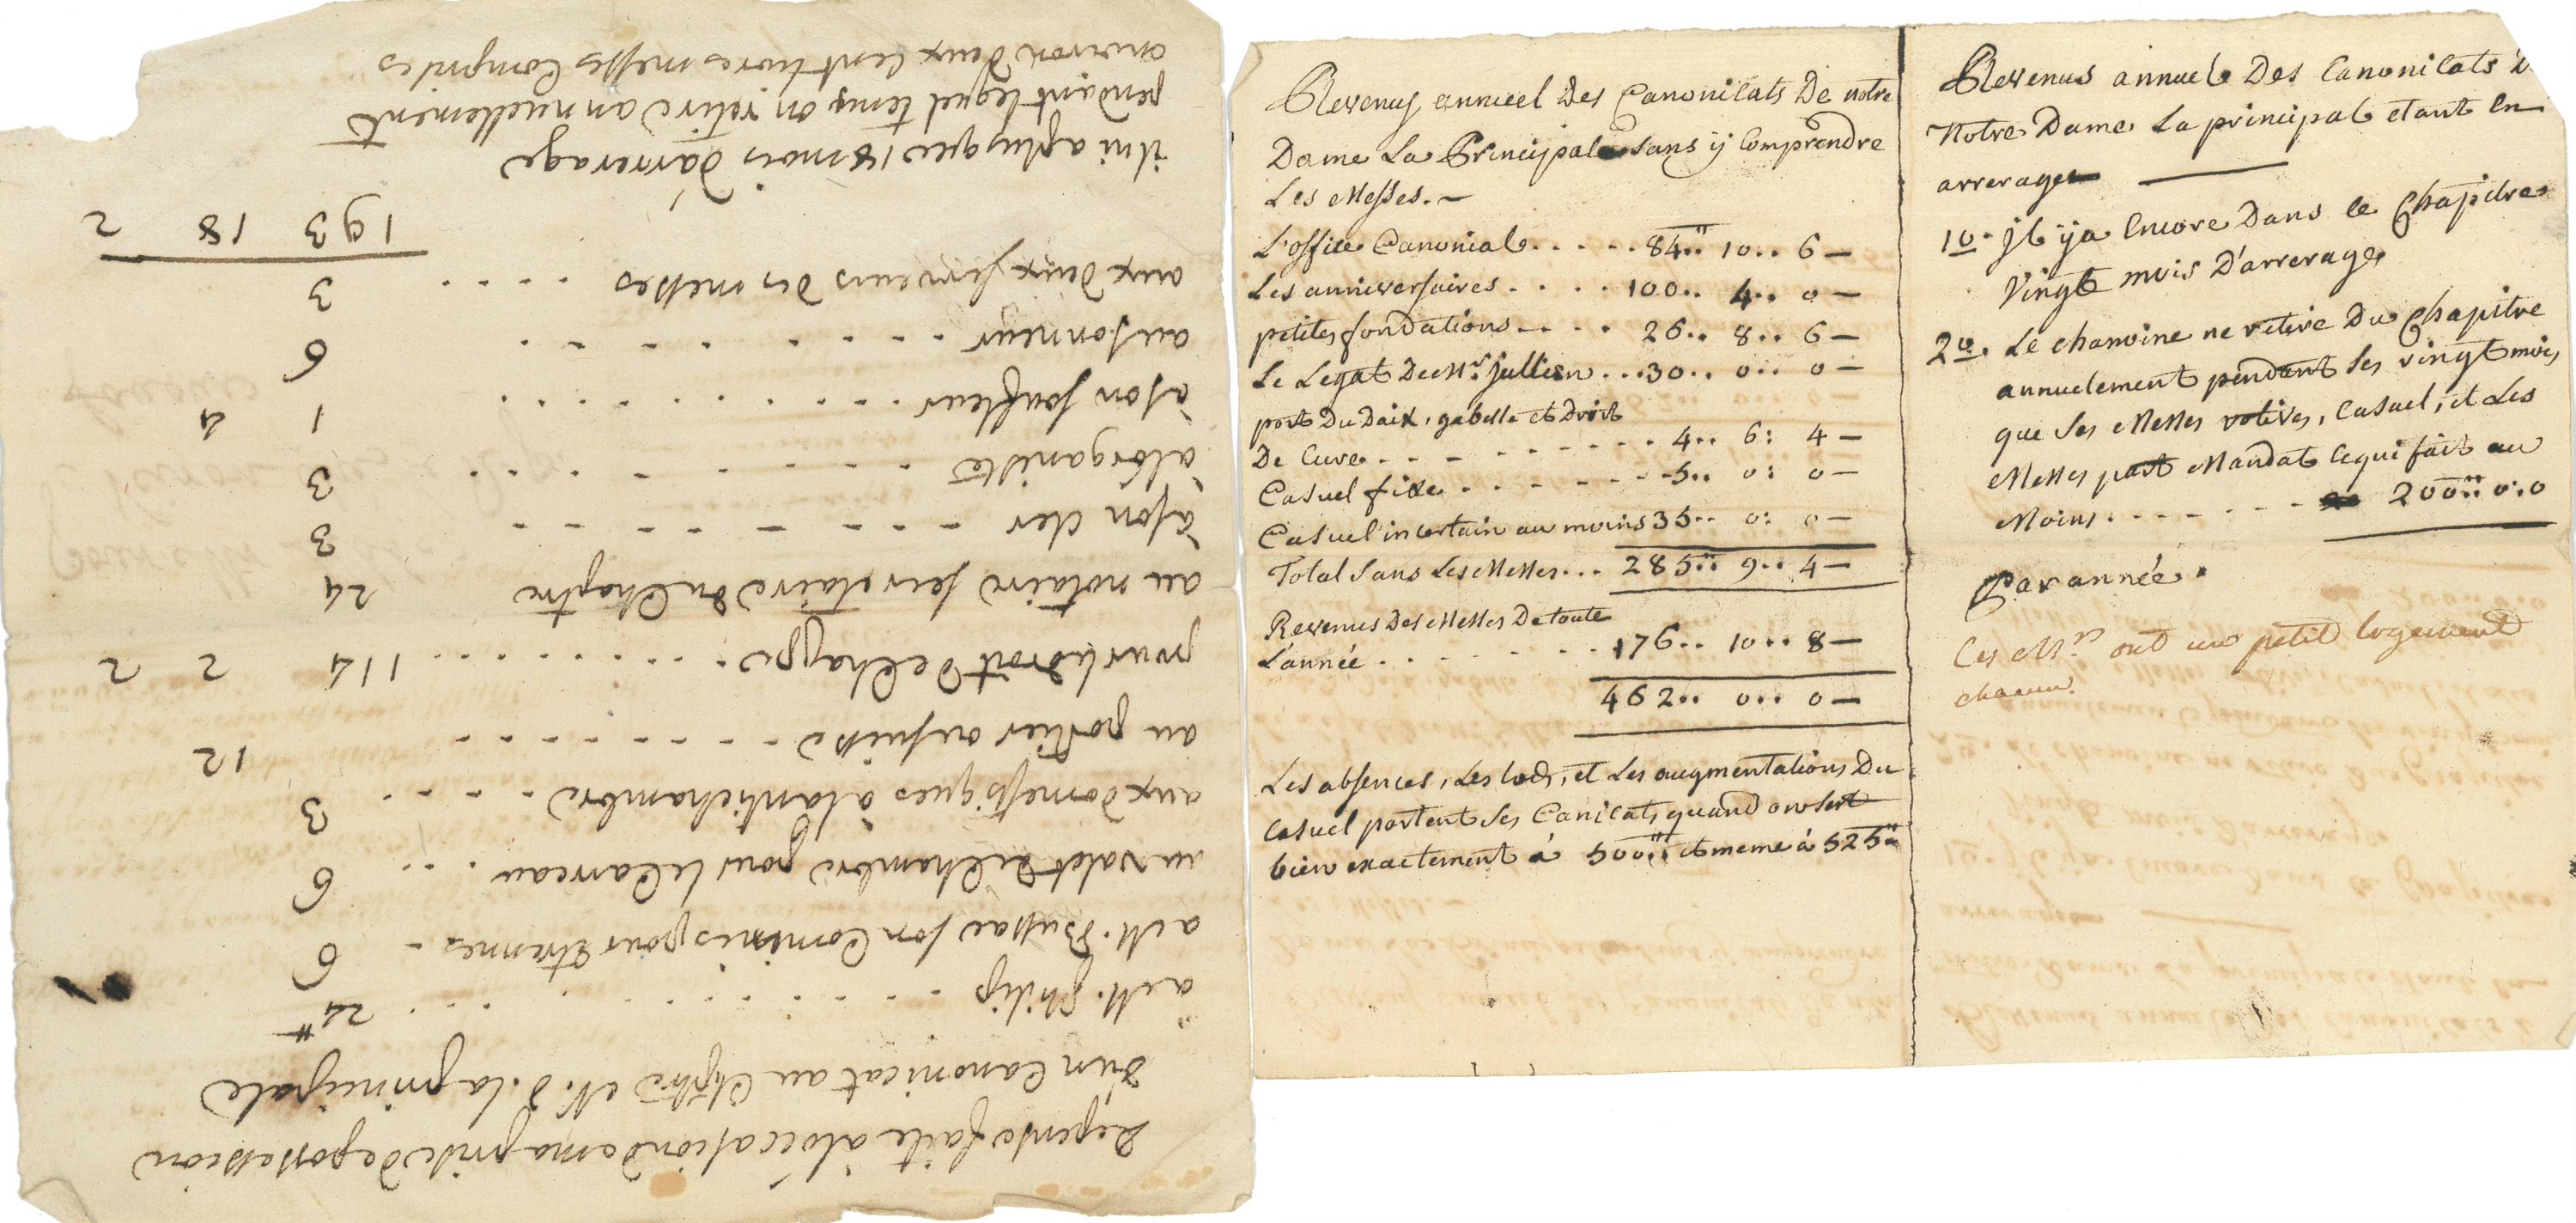 Depense faite à loccasion de ma prise de possession
d'un Canonicat au Chptre N. d. la principale
à M. philip . . . . . . . . . . 24 ₶
a M. Bussac son Commis pour Etrennes - 6
au valet de Chambre pour le Carreau . . . 6
aux domestiques à lantichambre - . - - - 3
au portier ou suisse - - - - - - - - 12
pour le droit de Chappe . . . . . . . . 114 2 2
au notaire secretaire du Chapitre 24
à son clerc - - - - - - - - - 3
à lorganiste - . - - - . . . . 3
à son soufleur . . . . . . . . . 1 4
au sonneur - - - . . - - - - 6
aux deux serveurs des messes . . . - . 3
193 18 2
il ni a plus que 18 mois d'arrerage
pendant lequel tems on retire annuellement
environ deux cent livres messes Comprises
Revenus annuel Des Canonicats De notre
Dame La Principale sans y Comprendre
Les Messes. -
L'office Canonial . . . . . 84.. 10.. 6 -
Les anniversaires . . . . 100.. 4.. 0 -
petites fondations - . . . 26.. 8.. 6 -
Le Legat De Mr. Jullien . . . 30.. 0.. 0 -
port Du Daix, gabelle et Droit
De Cure . . - - - - - - . 4.. 6: 4 -
Casuel fixe . . . - - - - - 5.. 0: 0 -
Casuel incertain au moins 35.. 0: 0 -
Total Sans Les Messes . . . 285.. 9.. 4 -
Revenus Des Messes De toute
L'année . . . - - - - . 176.. 10.. 8 -
462.. 0.. 0 -
Les absences, Les lods, et Les augmentations Du
Casuel portent Les Canicats quand on sert
bien exactement à 500 ₶ et meme à 525 ₶
Revenus annuels Des Canonicats D
Notre Dame La principale etant En
arrerages
1o. Jl y a Encore Dans le Chapitre
Vingt mois D'arrerages
2o. Le chanoine ne retire Du Chapitre
annuelement pendant Les vingt mois
que Les Messes votives, Casuel, et Les
Messes part Mandat Ce qui fait au
Moins . . . - - - - 200 ₶ 0: 0
Par année.
Ces Mrs ont un petit logement
chacun.